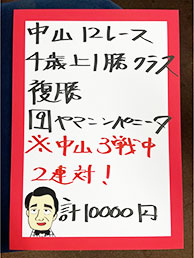 中山12レース
4歳上1勝クラス
複勝
9ヤマニンパニータ
※中山3戦中
2連対!
計10000円